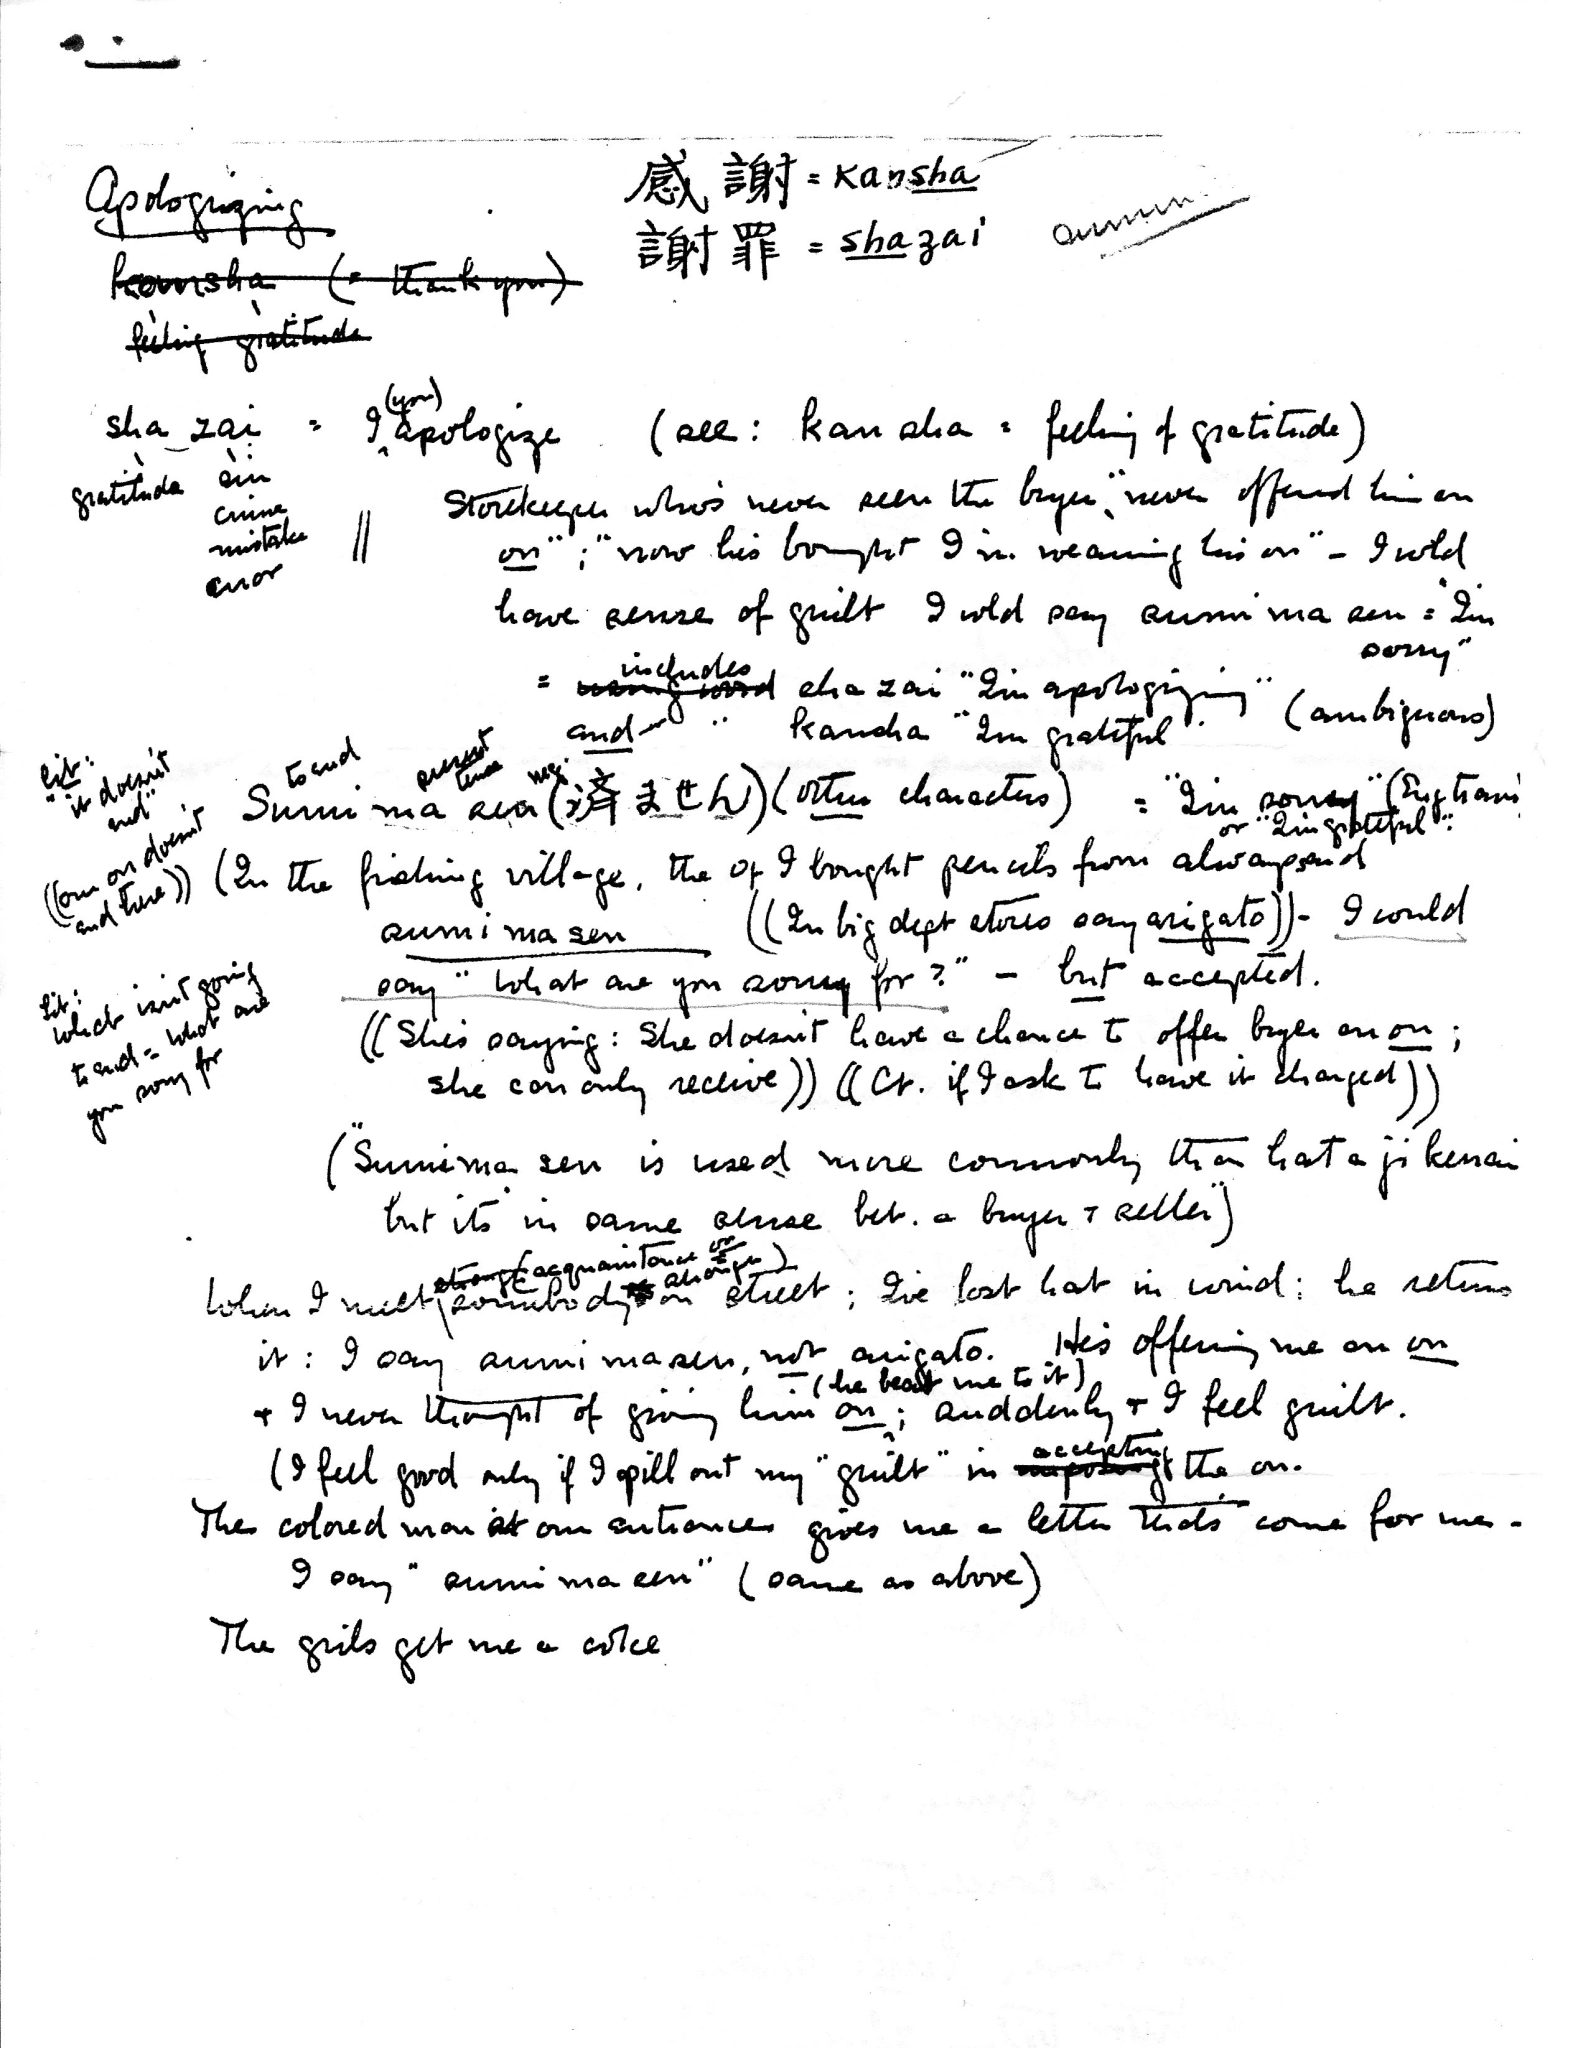 Apologizing
感謝 = kansha
謝罪 = shazai
kansha (= thank you)
feeling gratitude
sha zai = I (you) apologize (see: kansha = feeling of gratitude)
gratitude sin
crime
mistake
error
|| Storekeeper who's never seen the buyer, "never offered him an
on"; "now his bought I'm wearing his on" – I wld
have sense of guilt I wld say sumimasen = "I'm
sorry"
= includes shazai "I'm apologizing"
and " kansha "I'm grateful" (ambiguous)
lit:
"it doesn't
end"
((our on doesn't
end here))
to end present tense neg.
Sumimasen (済ません) (often characters) = "I'm sorry" (Eng trans
or "I'm grateful".
(In the fishing village, the I bought pencils from always said
sumimasen ((In big dept stores say arigato)) – I could
say "What are you sorry for?" – but accepted.
lit:
what isn't going
to end = what are
you sorry for
((She's saying: She doesn't have a chance to offer buyer an on;
she can only receive)) ((Cf. if I ask to have it charged))
("Sumimasen is used more commonly than katajikenai
but its in same sense bet. a buyer + seller")
When I meet (acquaintance or stranger) somebody on street; I've lost hat in wind: he returns
it: I say sumimasen, not arigato. He's offering me an on
+ I never thought of giving him on (he beat me to it); suddenly + I feel guilt.
(I feel good only if I spill out my "guilt" in accepting the on.
The colored man at our entrance gives me a letter that's come for me –
I say "sumimasen" (same as above)
The girls get me a coke